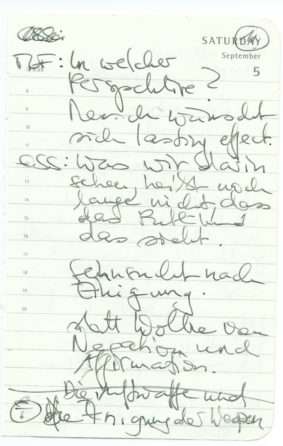 SATURDAY
September
5
In welcher
Perspektive?
Mensch wünscht
sich lasting effect.
Was wir darin
sehen, heißt noch
lange nicht, dass
das Publikum
das sieht.
Sehnsucht nach
Einigung.
statt Wolke von
Negation und
Affirmation.
Die Luftwaffe und
die Einigung der Waagen